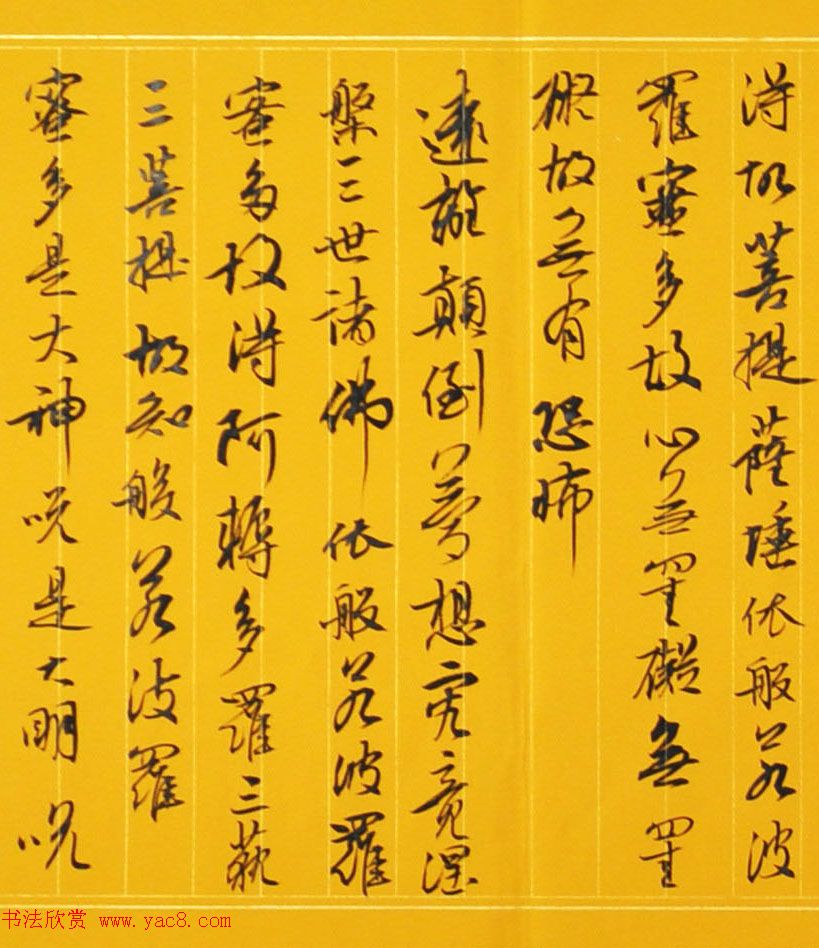 得故菩提薩埵依般若波
羅蜜多故心無罣礙無罣
礙故無有恐怖
遠離顛倒夢想究竟涅
槃三世諸佛依般若波羅
蜜多故得阿耨多羅三藐
三菩提故知般若波羅
蜜多是大神呪是大明呪
书法欣赏 www.yac8.com